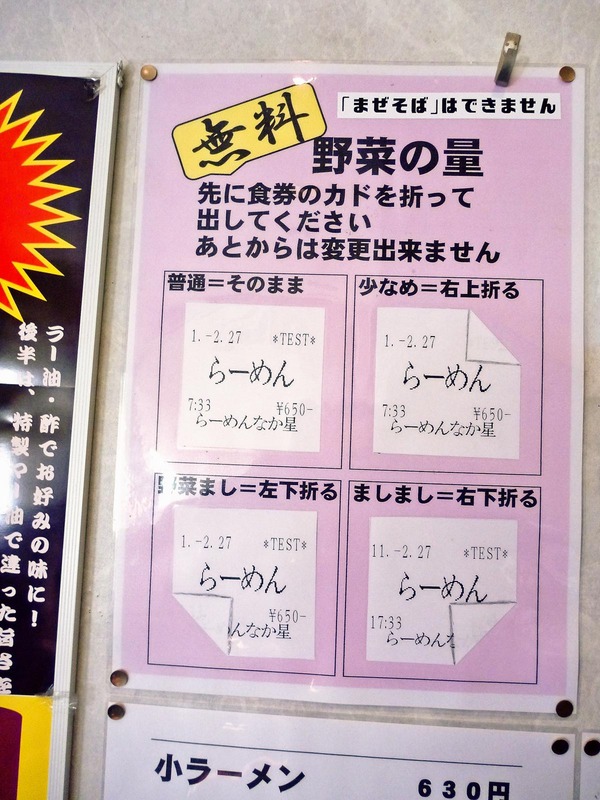 「まぜそば」はできません
無料
野菜の量
先に食券のカドを折って
出してください
あとからは変更出来ません
普通=そのまま
1.-2.27 *TEST*
らーめん
7:33 ¥650-
らーめんなか星
少なめ=右上折る
1.-2.27
らーめん
7:33 ¥650-
らーめんなか星
野菜まし=左下折る
1.-2.27 *TEST*
らーめん
¥650-
んなか星
ましまし=右下折る
11.-2.27 *TEST*
らーめん
17:33
らーめんな
ラー油・酢でお好みの味に!
後半は、特製ラー油で違った
小ラーメン 630円